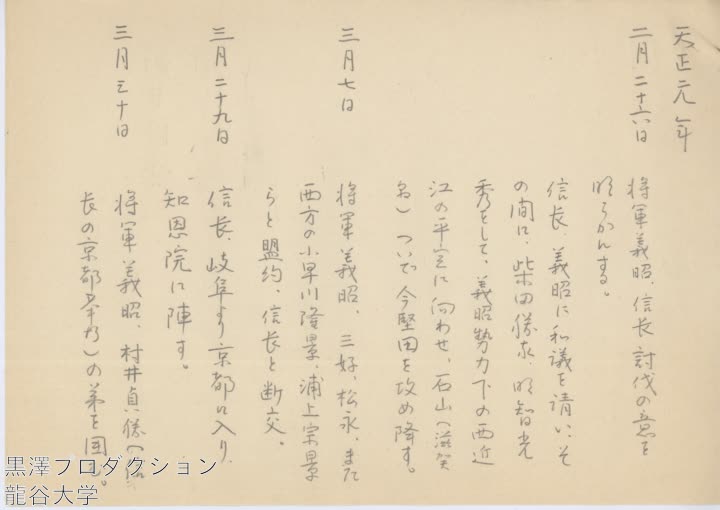 天正元年
二月二十六日
将軍義昭、信長討伐の意を
明らかにする。
信長、義昭に和議を請い、そ
の間に、柴田勝家、明智光
秀をして、義昭勢力下の西近
江の平定に向わせ、石山（滋賀
）ついで今堅田を攻め降す。
三月七日
将軍義昭、三好、松永、また
西方の小早川隆景、浦上宗景
らと盟約、信長と断交。
三月二十九日
信長、岐阜より京都に入り、
知恩院に陣す。
三月三十日
将軍義昭、村井貞勝（信
長の京都奉行）の弟を囲む。
黒澤プロダクション
龍谷大学